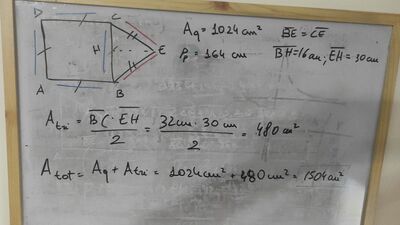 D C A_q = 1024 cm² B̅E̅ = C̅E̅
H E P_p = 164 cm B̅H̅=16 cm; E̅H̅ = 30 cm
A B
A_tri = B̅C̅ · E̅H̅ / 2 = 32cm · 30 cm / 2 = 480 cm²
A_tot = A_q + A_tri = 1024 cm² + 480 cm² = 1504 cm²